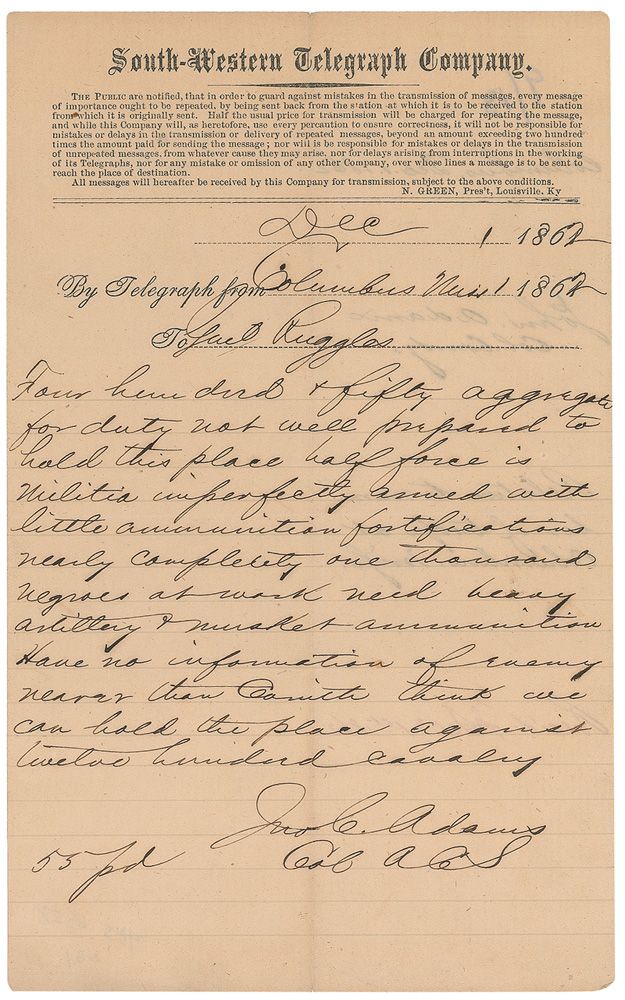 South-Western Telegraph Company.
THE PUBLIC are notified, that in order to guard against mistakes in the transmission of messages, every message
of importance ought to be repeated, by being sent back from the station at which it is to be received to the station
from which it is originally sent. Half the usual price for transmission will be charged for repeating the message,
and while this Company will, as heretofore, use every percantion to ensure correctness, it will not be responsible for
mistakes or delays in the transmission or delivery of repeated messages, beyond an amount exceeding two hundred
times the amount paid for sending the message; nor will is be responsible for mistakes or delays in the transmission
of unrepeated messages, from whatever cause they may arise, nor for delays arising from interruptions in the working
of its Telegraphs, nor for any mistake or omission of any other Company, over whose lines a message is to be sent to
reach the place of destination.
All messages will hereafter be received by this Company for transmission, subject to the above conditions.
N. GREEN, Pres't, Louisville, Ky
Dec 1 1862
By Telegraph from Columbus Miss 1 1862
To Genl Ruggles
Four hundrd & fifty aggregate
for duty not well prepared to
hold this place half force is
Militia imperfectly armed with
little ammunition fortifications
nearly completety one thousand
negroes at work need heavy
artillery & musket ammunition
Have no information of enemy
nearer than Corinth think we
can hold the place against
twelve hundred cavalry
Jno C. Adams
Col A C S
55 pd